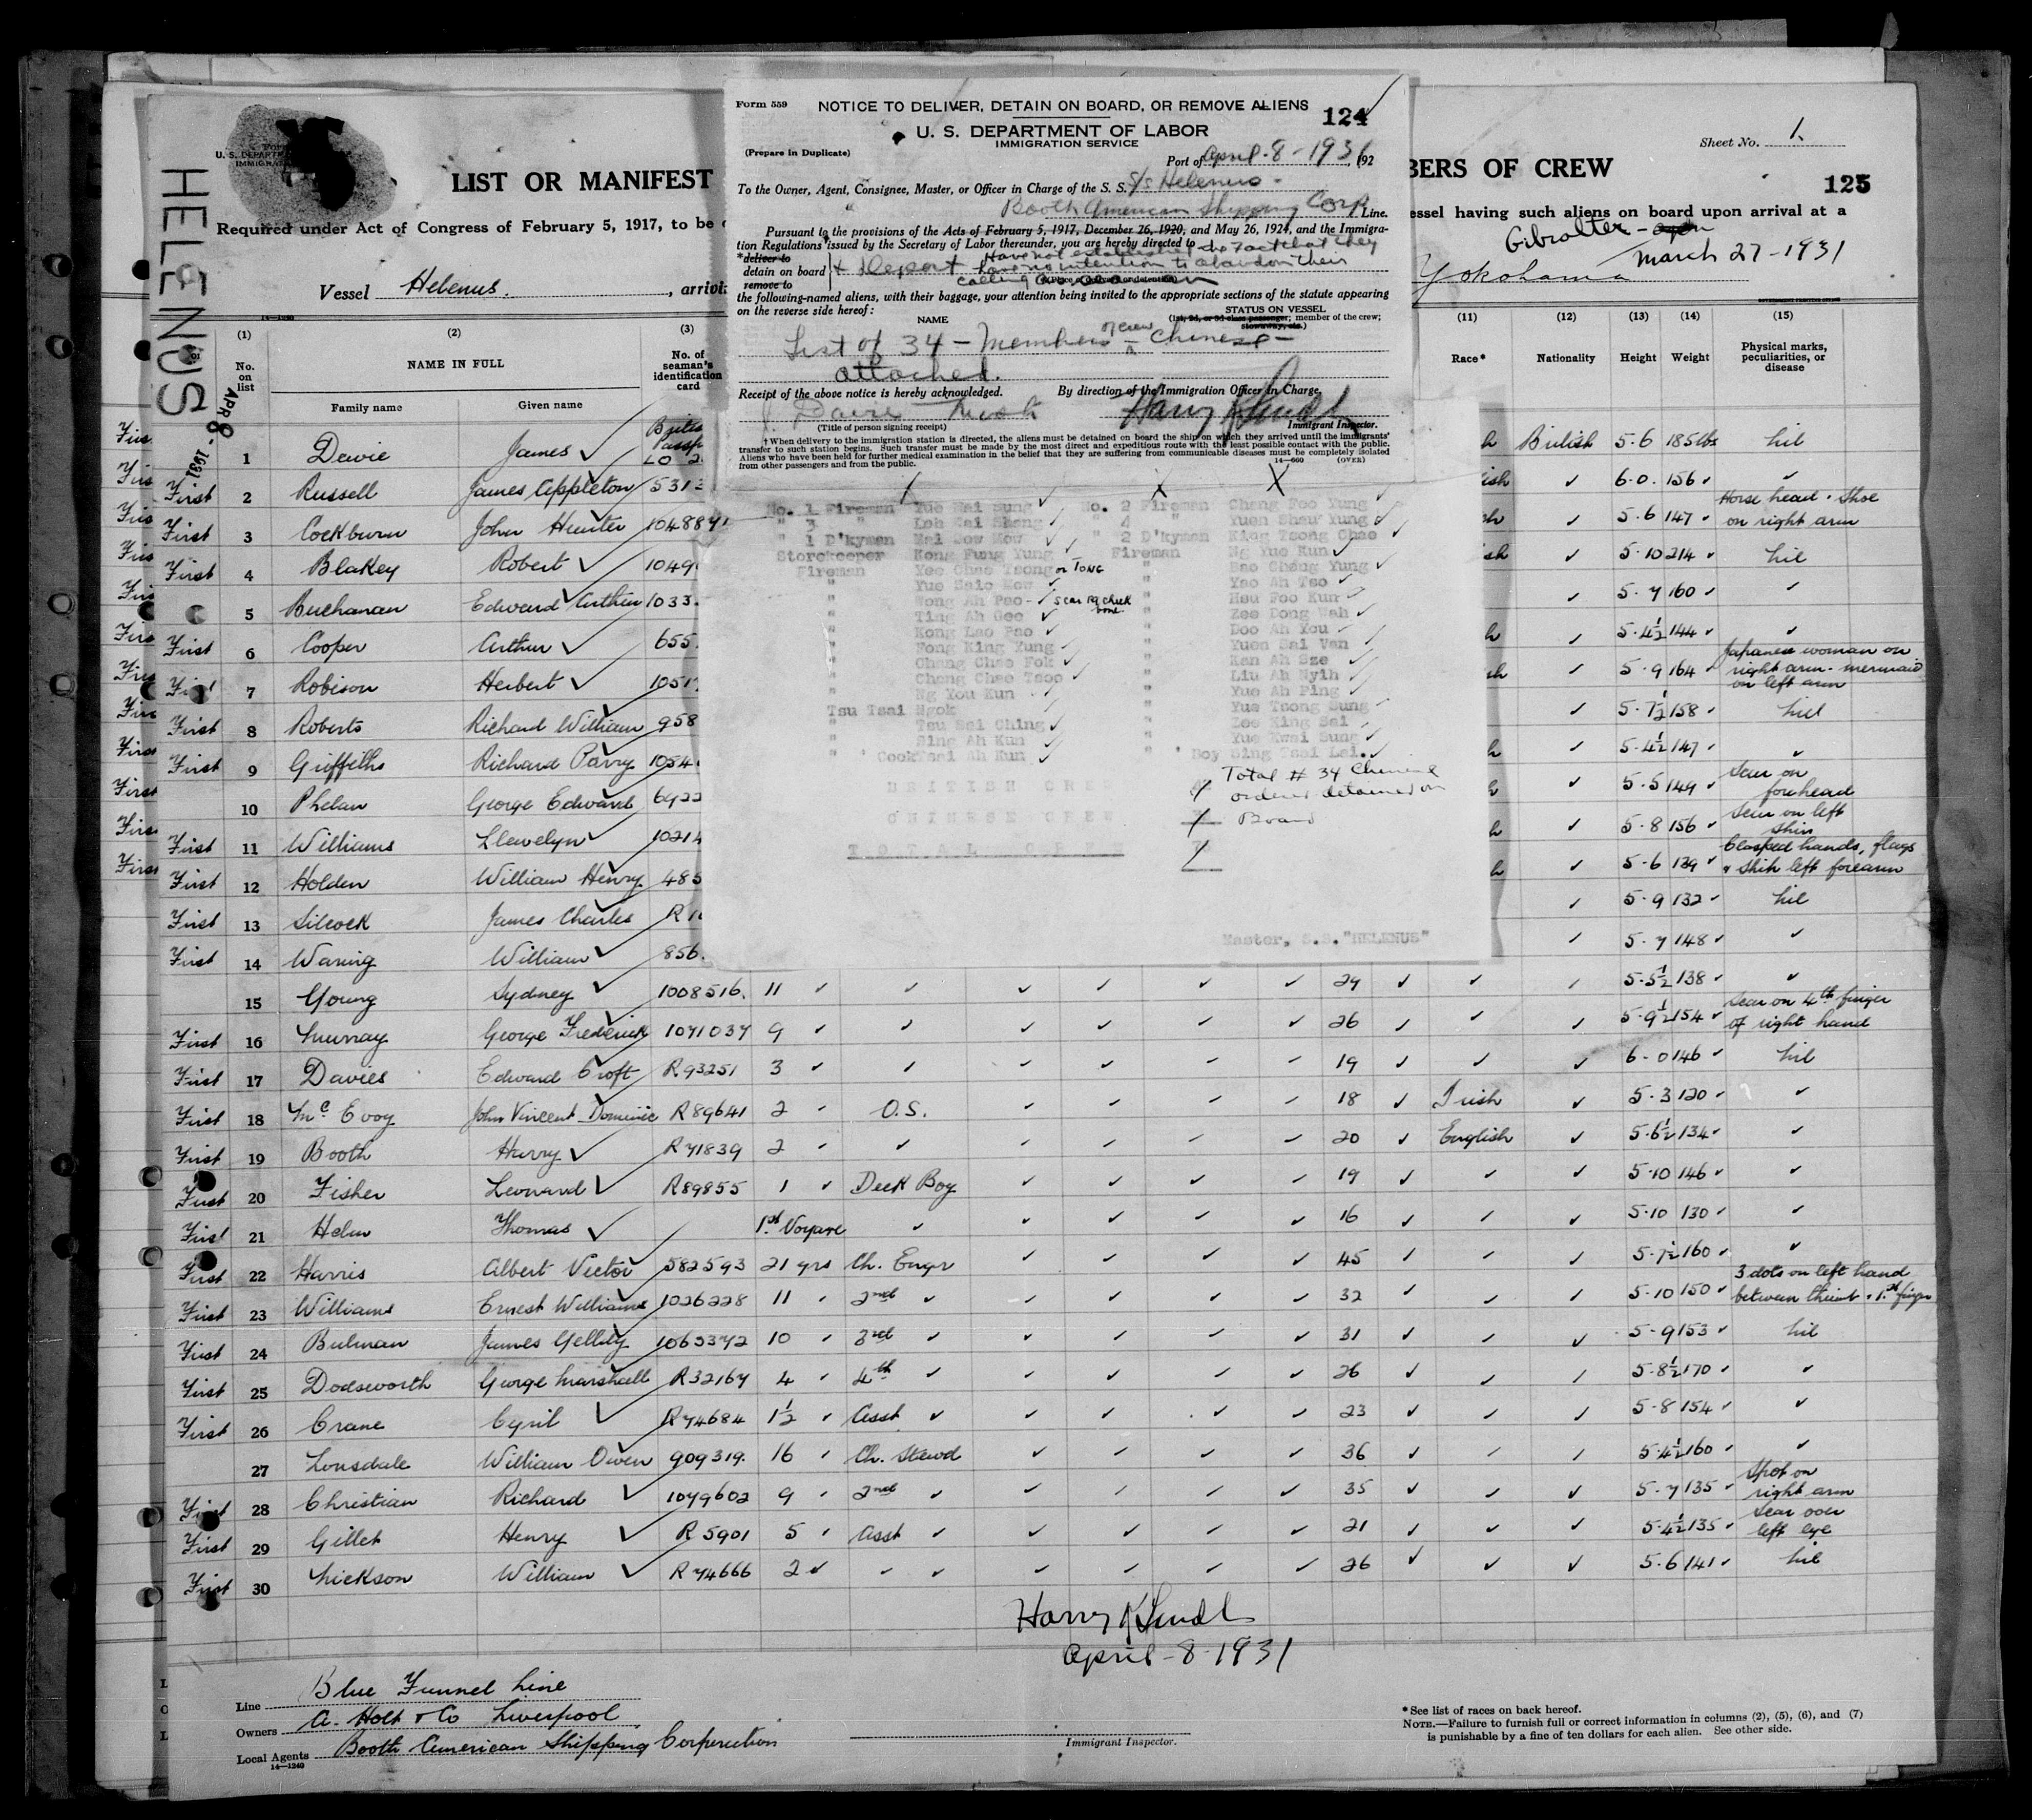 Form 559
NOTICE TO DELIVER, DETAIN ON BOARD, OR REMOVE ALIENS
124
U. S. DEPARTMENT OF LABOR
IMMIGRATION SERVICE
(Prepare in Duplicate)
Port of April-8-1931, 192
To the Owner, Agent, Consignee, Master, or Officer in Charge of the S. S. S/S Helenus -
Booth American Shipping Corp Line.
Pursuant to the provisions of the Acts of February 5, 1917, December 26, 1920, and May 26, 1924, and the Immigra-
tion Regulations issued by the Secretary of Labor thereunder, you are hereby directed to
*deliver to
detain on board
remove to
& Report have not established the fact that they
have no intention to abandon their
calling as seamen
the following-named aliens, with their baggage, your attention being invited to the appropriate sections of the statute appearing
on the reverse side hereof:
NAME
STATUS ON VESSEL
(1st, 2d, or 3d class passenger; member of the crew;
stowaway, etc.)
List of 34 - Members of crew - Chinese -
attached.
Receipt of the above notice is hereby acknowledged.
By direction of the Immigration Officer in Charge,
(Title of person signing receipt)
Immigrant Inspector.
† When delivery to the immigration station is directed, the aliens must be detained on board the ship on which they arrived until the immigrants'
transfer to such station begins. Such transfer must be made by the most direct and expeditious route with the least possible contact with the public.
Aliens who have been held for further medical examination in the belief that they are suffering from communicable diseases must be completely isolated
from other passengers and from the public.
14—660 (OVER)
No. 1 Fireman Yue Mai Sung No. 2 Fireman Chang Foo Yung
" 3 " Loh Zai Shang " 4 " Yuen Shew Yung
" 1 D'kyman Mai Sow Mow " 2 D'kyman King Tsong Chao
Storekeeper Kong Fung Yung Fireman Ng Yue Kun
Fireman Yee Chao Tsong or TONG " Bao Chang Yung
" Yue Saic Mow " Yao Ah Tso
" Wong Ah Pao - scar rg cheek bone " Hsu Foo Kun
" Ting Ah Gee " Zee Dong Wah
" Kong Lao Pao " Doo Ah You
" Fong King Yung " Yuen Sai Van
" Chang Chao Fok " Han Ah Sze
" Cheng Chao Tsoo " Liu Ah Nyih
" Ng You Kun " Yue Ah Ping
Tsu Tsai Ngok " Yue Tsong Sung
" Tsu Sai Ching " Zee King Sai
" Sing Ah Kun " Yue Kwai Sung
" Cook Tsai Ah Kun " Boy Sing Tsai Lai.
Total # 34 Chinese
ordered detained on
Board
BRITISH CREW
CHINESE CREW
TOTAL CREW
Master, S.S. "HELENUS"
HELENUS
APR 8 - 1931
U. S. DEPART
IMMIGRA
LIST OR MANIFEST
BERS OF CREW
Sheet No. 1.
125
Required under Act of Congress of February 5, 1917, to be
essel having such aliens on board upon arrival at a
Vessel Helenus., arrivi
Gibralter -
Yokohama
March 27-1931
(1) (2) (3) (11) (12) (13) (14) (15)
No. on list
NAME IN FULL
Family name Given name
No. of seaman's identification card
Race* Nationality Height Weight Physical marks, peculiarities, or disease
1 Dewie James British 5.6 185 lbs Nil
First 2 Russell James Appleton 5313 6.0. 156
First 3 Cockburn John Hunter 104887 5.6 147 Horse head & Shoe on right arm
First 4 Blakey Robert 1049 5.10 214 Nil
5 Buchanan Edward Arthur 1033. 5.7 160
First 6 Cooper Arthur 655. 5.4½ 144
First 7 Robison Herbert 1051 5.9 164 Japanese woman on right arm. mermaid on left arm
First 8 Roberts Richard William 958 5.7½ 158 Nil
First 9 Griffiths Richard Parry 1054 5.4½ 147
10 Phelan George Edward 6922 5.5 149 Scar on forehead
First 11 Williams Llewelyn 10214 5.8 156 Scar on left shin
First 12 Holden William Henry 485 5.6 139 Clasped hands, flags & Ship left forearm
First 13 Silcock James Charles R 1 5.9 132 Nil
First 14 Waring William 856. 5.7 148
15 Young Sydney 1008516. 11 29 5.5½ 138
First 16 Murray George Frederick 1071037 9 26 5.9½ 154 Scar on 4th finger of right hand
First 17 Davies Edward Croft R93251 3 19 6-0 146 Nil
First 18 McEvoy John Vincent Dominic R89641 2 O.S. 18 Irish 5.3 120
First 19 Booth Harry R71839 2 20 English 5.6½ 134
First 20 Fisher Leonard R89855 1 Deck Boy 19 5.10 146
First 21 Helm Thomas 1st Voyage 16 5.10 130
First 22 Harris Albert Victor 582593 21 yrs Ch. Engr 45 5.7½ 160
First 23 Williams Ernest Williams 1026228 11 2nd 32 5.10 150 3 dots on left hand between thumb & 1st finger
First 24 Bulman James Gellity 1065372 10 3rd 31 5-9 153 Nil
First 25 Dodsworth George Marshall R32167 4 4th 26 5.8½ 170
First 26 Crane Cyril R74684 1½ Asst 23 5.8 154
27 Lonsdale William Owen 909319. 16 Ch. Stewd 36 5.4½ 160
First 28 Christian Richard 1079602 9 2nd 35 5.7 135 Spot on right arm
First 29 Gillet Henry R 5901 5 Asst 21 5.4½ 135 Scar over left eye
First 30 Nickson William R 74666 2 26 5.6 141 Nil
April-8-1931
Line Blue Funnel Line
Owners A. Holt & Co Liverpool
Local Agents Booth American Shipping Corporation
14—1240
Immigrant Inspector.
*See list of races on back hereof.
NOTE.—Failure to furnish full or correct information in columns (2), (5), (6), and (7)
is punishable by a fine of ten dollars for each alien. See other side.